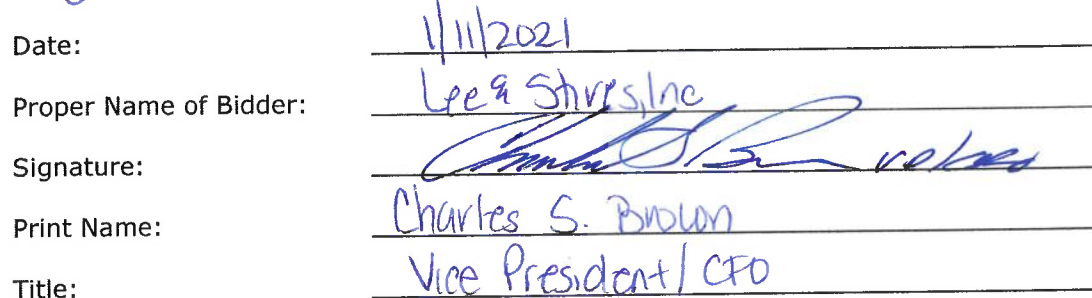 Date: 1/11/2021
Proper Name of Bidder: Lee & Stires, Inc
Signature:
Print Name: Charles S. Brown
Title: Vice President / CFO